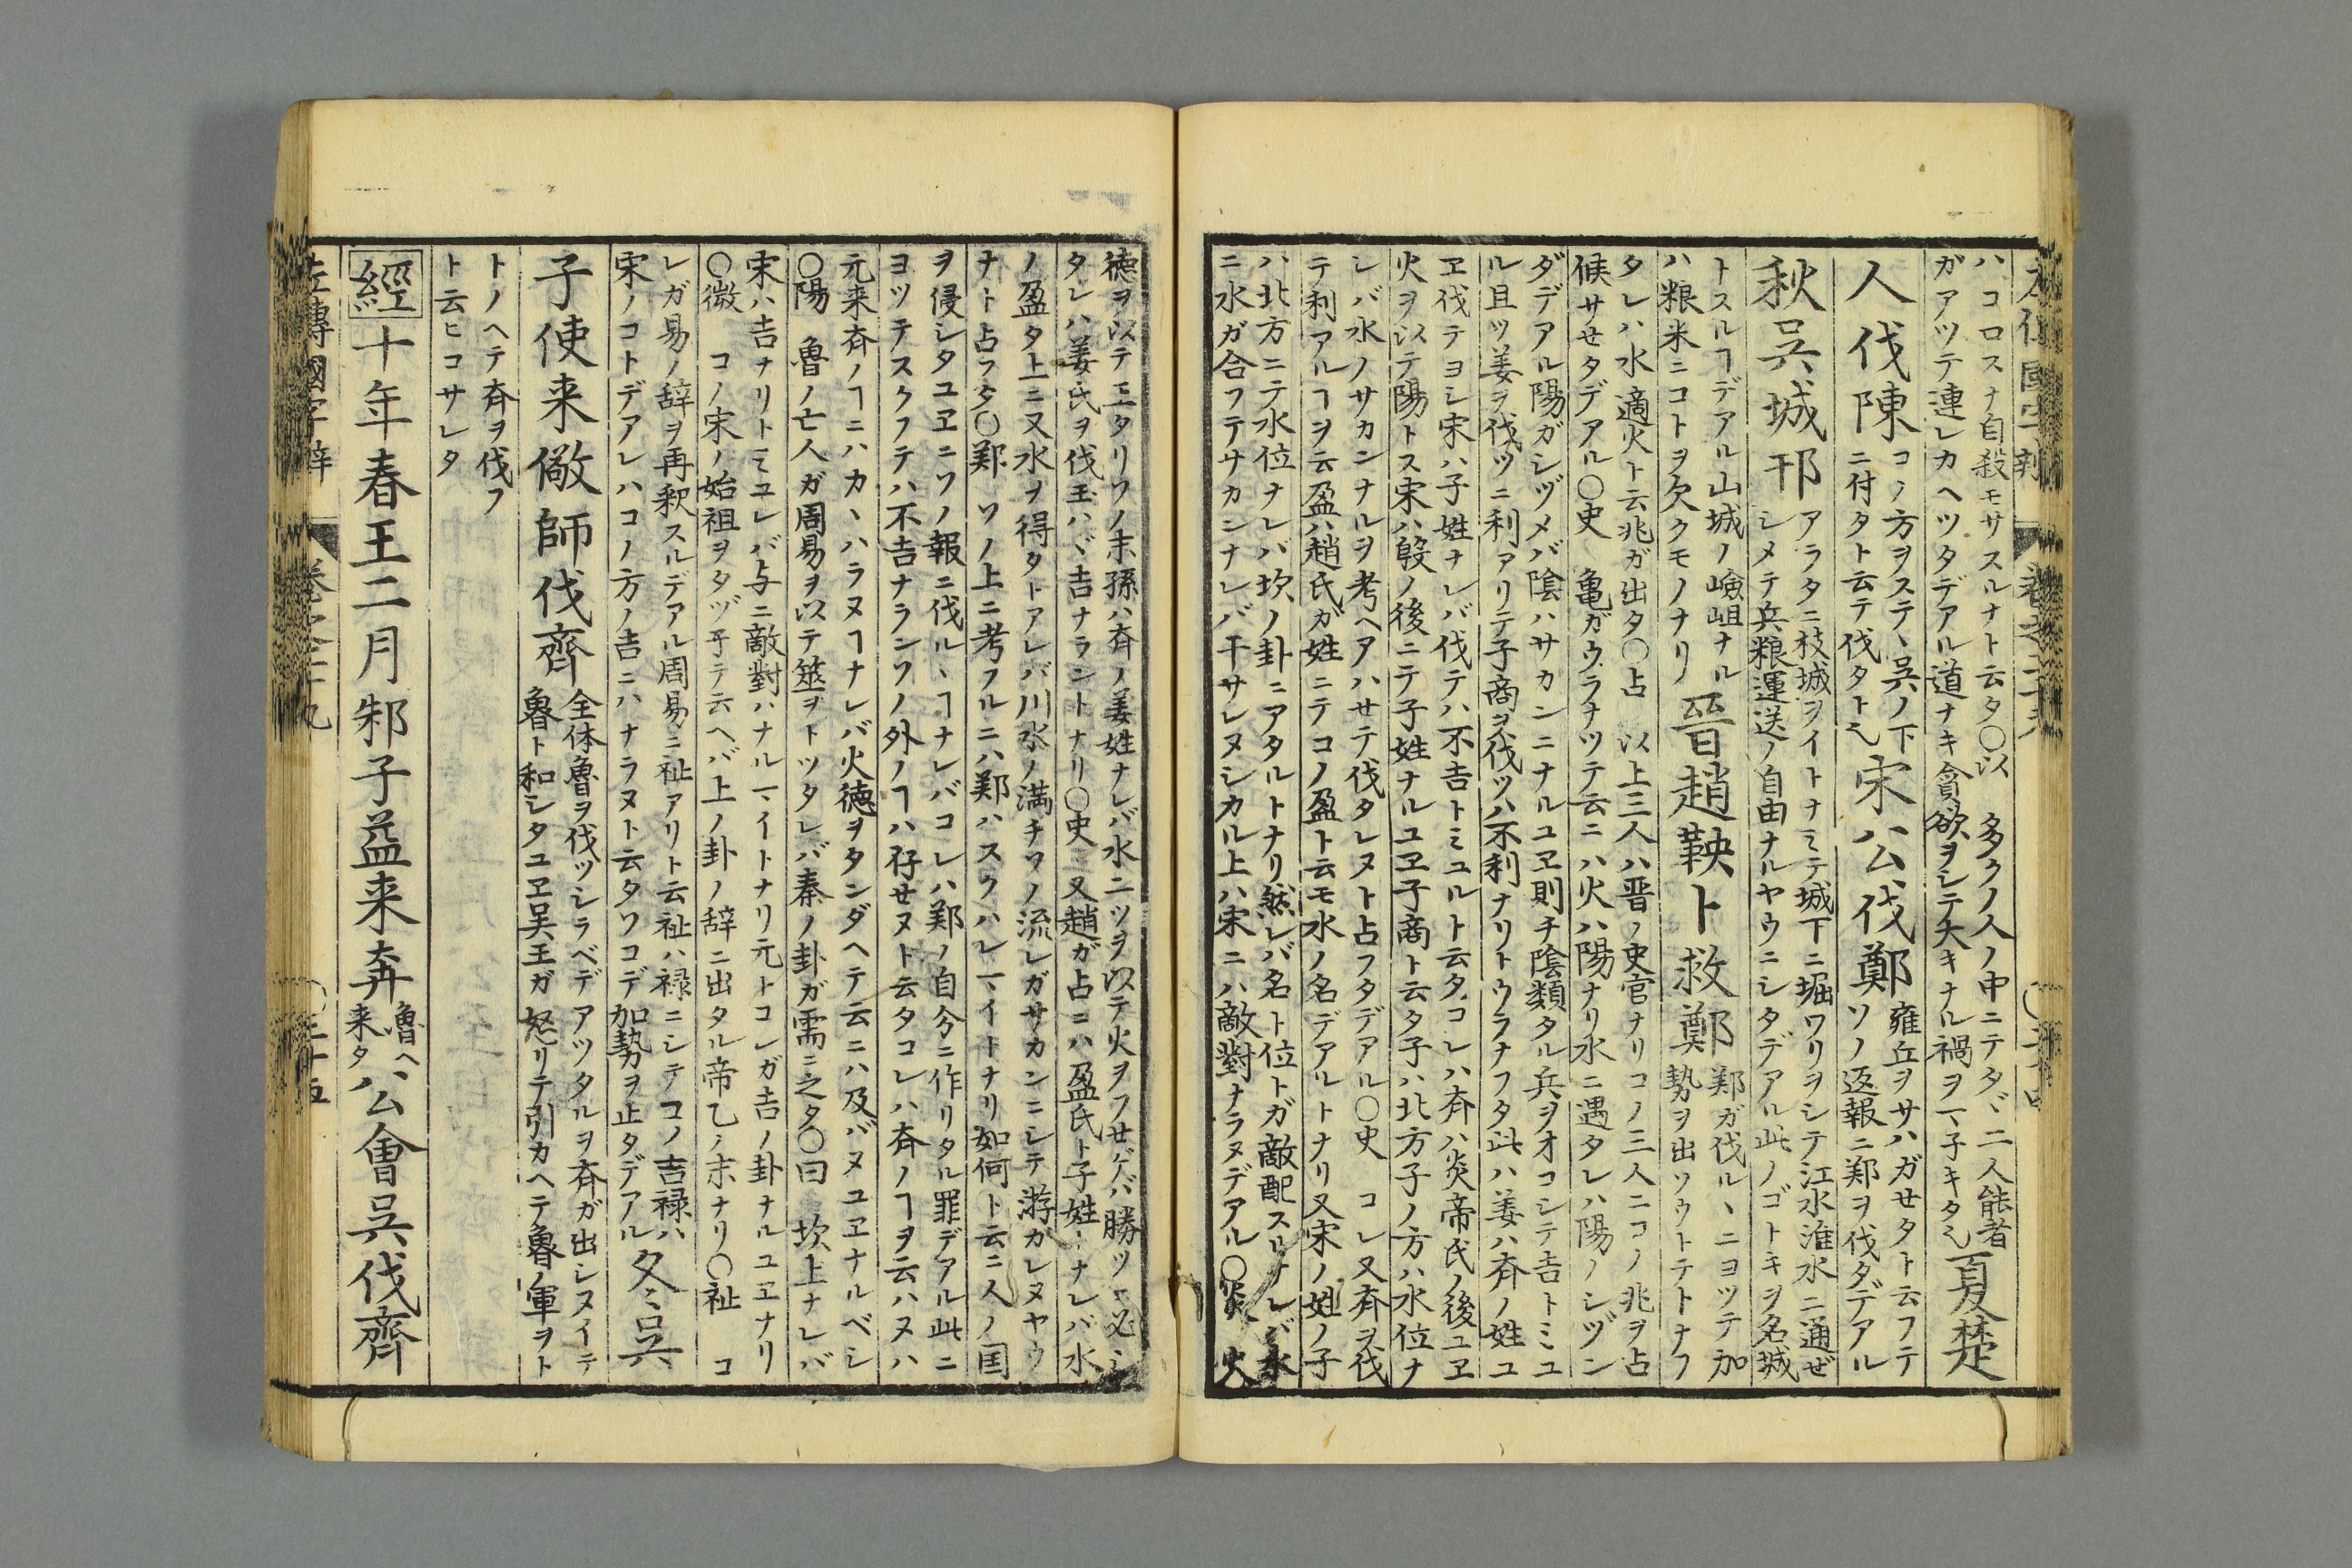 ハコロスナ自殺モサスルナト云タ〇以 多クノ人ノ中ニテタヾ二人能者
ガアツテ連レカヘツタデアル道ナキ貪欲ヲシテ大キナル禍ヲマ子キタ 夏楚
人伐陳
コノ方ヲステヽ呉ノ下
ニ付タト云テ伐タト
宋公伐鄭
雍丘ヲサハガセタト云フテ
ソノ返報ニ鄭ヲ伐タデアル
秋呉城邗
アラタニ枝城ヲイトナミテ城下ニ堀ワリヲシテ江水淮水ニ通ぜ
シメテ兵粮運送ノ自由ナルヤウニシタデアル此ノゴトキヲ名城
トスルヿデアル山城ノ嶮岨ナル
ハ粮米ニコトヲ欠クモノナリ
晉趙鞅卜救鄭
鄭ガ伐ルヽニヨツテ加
勢ヲ出ソウトテトナフ
タレハ水適火ト云兆ガ出タ〇占 以上三人ハ晋ノ史官ナリコノ三人ニコノ兆ヲ占
候サせタデアル〇史 亀ガウラナツテ云ニハ火ハ陽ナリ水ニ遇タレハ陽ノシヅン
ダデアル陽ガシヅメバ陰ハサカンニナルユヱ則チ陰類タル兵ヲオコシテ吉トミユ
ル且ツ姜ヲ伐ツニ利アリテ子商ヲ伐ツハ不利ナリトウラナフタ此ハ姜ハ斉ノ姓ユ
ヱ伐テヨシ宋ハ子姓ナレバ伐テハ不吉トミユルト云タコレハ斉ハ炎帝氏ノ後ユヱ
火ヲ以テ陽トス宋ハ殷ノ後ニテ子姓ナルユヱ子商ト云タ子ハ北方子ノ方ハ水位ナ
レバ水ノサカンナルヲ考ヘアハせテ伐タレヌト占フタデアル〇史 コレ又斉ヲ伐
テ利アルヿヲ云盈ハ趙氏ガ姓ニテコノ盈ト云モ水ノ名デアルトナリ又宋ノ姓ノ子
ハ北方ニテ水位ナレバ坎ノ卦ニアタルトナリ然レバ名ト位トガ敵配スリナレバ水
ニ水ガ合フテサカンナレバ干サレヌシカル上ハ宋ニハ敵對ナラヌデアル〇炎 火
徳ヲ以テ王タリソノ末孫ハ斉ノ姜姓ナレバ水ニツヲ以テ火ヲフせゲバ勝ツハ必ミ
タレハ姜氏ヲ伐玉ハヾ吉ナラントナリ〇史 又趙ガ占ニハ盈氏ト子姓ヽナレバ水
ノ盈タ上ニ又水ヲ得タトアレバ川水ノ満チソノ流レガサカンニシテ游ガレヌヤウ
ナト占フタ〇鄭 ソノ上ニ考フルニハ鄭ハスクハレマイトナリ如何ト云ニ人ノ国
ヲ侵シタユヱニソノ報ニ伐ルヽヿナレバコレハ鄭ノ自今ニ作リタル罪デアル此ニ
ヨツテスクフテハ不吉ナランソノ外ノヿハ存せヌト云タコレハ斉ノヿヲ云ハヌハ
元来斉ノヿニハカヽハラヌヿナレバ火徳ヲタンダヘテ云ニハ及バヌユヱナルベシ
〇陽 魯ノ亡人ガ周易ヲ以テ筮ヲトツタレバ泰ノ卦ガ需ニ之タ〇曰 坎上ナレバ
宋ハ吉ナリトミユレバ与ニ敵對ハナルマイトナリ元トコレガ吉ノ卦ナルユヱナリ
〇微 コノ宋ノ始祖ヲタヅ子テ云ヘバ上ノ卦ノ辞ニ出タル帝乙ノ末ナリ〇祉 コ
レガ易ノ辞ヲ再釈スルデアル周易ニ祉アリト云祉ハ禄ニシテコノ吉禄ハ
宋ノコトデアレハコノ方ノ吉ニハナラヌト云タソコデ加勢ヲ止タデアル
冬呉
子使来儆師伐齊
全体魯ヲ伐ツシラベデアツタルヲ斉ガ出シヌイテ
魯ト和シタユヱ呉王ガ怒リテ引カヘテ魯ノ軍ヲト
トノヘテ斉ヲ伐フ
ト云ヒコサレタ
經十年春王二月邾子益来奔
魯ヘ
来タ
公會呉伐齊
左傳國字辯 巻之二十九 〇三十五